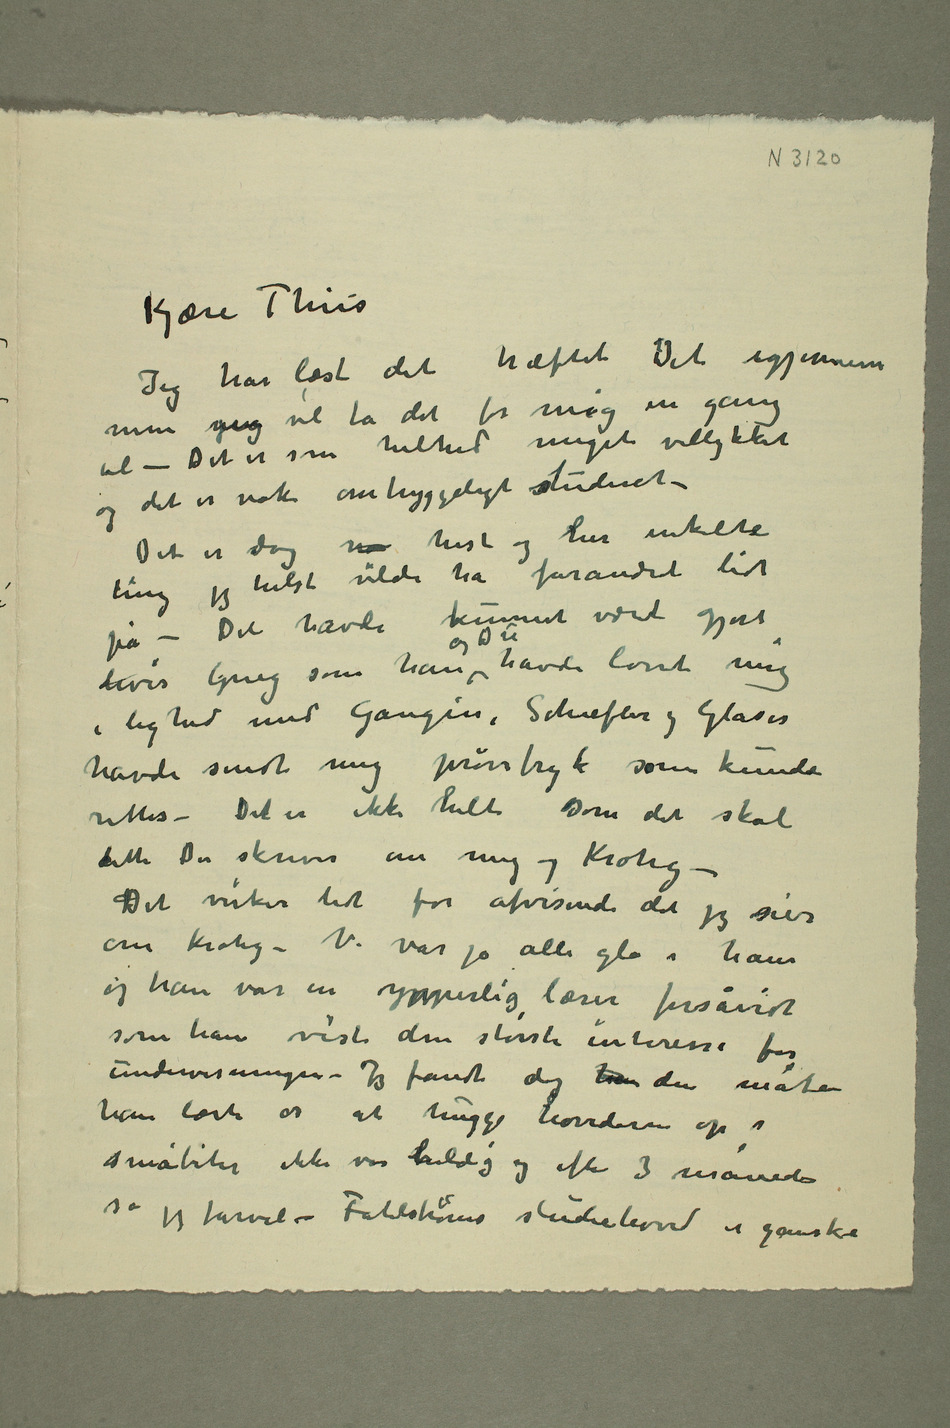 N 3120
Kjære Thiis
Jeg har læst det hæftet Det igjennem
men jeg vil ta det for mig en gang
til – Det er som helhed meget vellykket
og det er nok omhyggeligt studeret –
Det er dog hist og her enkelte
ting jeg helst vilde ha forandret lidt
på – Det havde kunnet været gjort
hvis Grieg som han og Du havde lovet mig
i lighed med Gaugin, Schiefler og Glaser
havde sendt mig prøvetryk som kunde
rettes – Det er ikke helt som det skal
dette Du skriver om mig og Krohg –
Det virker lidt for afvisende det jeg sier
om Krohg – Vi var jo alle gla i ham
og han var en ypperlig lærer forsåvidt
som han viste den største interesse for
undervisningen – Jeg fandt dog den måten
han lærte os at hugge hovederne op i
småbiter ikke var heldig og efter 3 måneder
sa jeg farvel – Fahlstrøms studiehoved er ganske